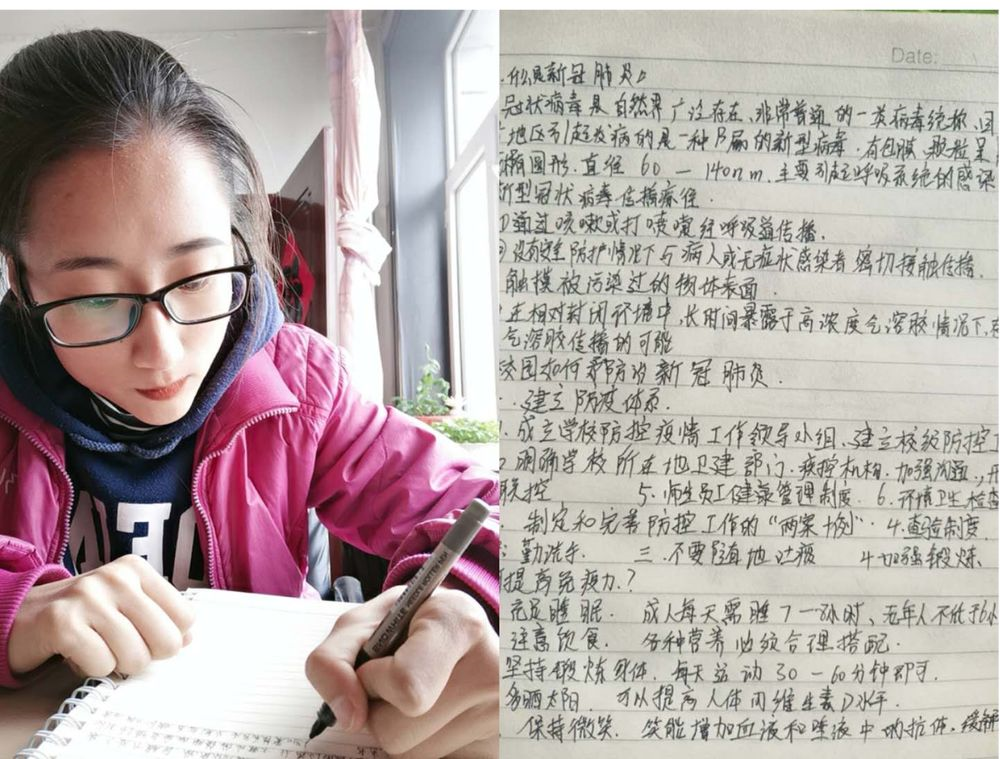 Date:
什么是新冠肺炎
冠状病毒是自然界广泛存在、非常普通的一类病毒统称,
地区引起疫病的是一种β属的新型病毒.有包膜.颗粒呈
椭圆形.直径60—140nm.主要引起呼吸系统的感染
新型冠状病毒传播
通过咳嗽或打喷嚏经呼吸道传播.
没有安全防护情况下与病人或无症状感染者密切接触传播.
触摸被污染过的物体表面.
在相对封闭环境中,长时间暴露于高浓度气溶胶情况下,
气溶胶传播的可能
校园如何 新冠肺炎.
建立防疫体系.
1.成立学校防控疫情工作领导小组、建立校级防控工
明确学校所在地卫建部门.疾控机构.加强沟通.,
联控 5.师生员工健康管理制度 6.环境卫生检查
制定和完善防控工作的“两案 例”. 4.查验制度.
勤洗手 三.不要随地吐痰 4加强锻炼.
提高免疫力?
充足睡眠. 成人每天需睡7—8小时、 年人不低于6小
注意饮食. 各种营养必须合理搭配.
坚持锻炼身体. 每天运动30—60分钟即可.
多晒太阳. 可以提高人体内维生素D水平.
保持微笑. 笑能增加血液和唾液中的抗体.